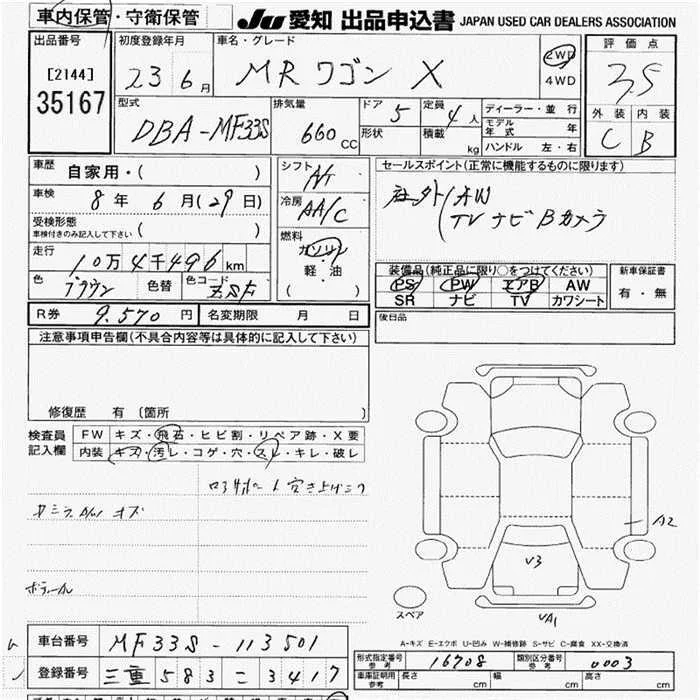 車内保管・守衛保管
JU 愛知 出品申込書 JAPAN USED CAR DEALERS ASSOCIATION
出品番号
[2144]
35167
初度登録年月
23 6月
車名・グレード
MRワゴン X
2WD
4WD
評価点
3.5
外装 内装
C B
型式
DBA-MF33S
排気量
660 CC
ドア 5
形状
定員 4人
積載 kg
ディーラー・並行
モデル年式 年
ハンドル 左・右
車歴 自家用・( )
車検 8年 6月(29日)
受検形態
車検付きのみ記入して下さい ( )
走行 10万4千496km
色 ブラウン 色替 色コード ZSF
シフト A/T
冷房 AA/C
燃料
ガソリン
・
軽・油
( )
セールスポイント(正常に機能するものに限ります)
社外 AW
TV ナビ Bカメラ
装備品(純正品に限り○をつけてください)
PS PW エアB AW
SR ナビ TV カワシート
新車保証書
有・無
R券 9,570 円 名変期限 月 日
後日品
注意事項申告欄(不具合内容等は具体的に記入して下さい)
修復歴 有 〔箇所
検査員記入欄
FW キズ・飛石・ヒビ割・リペア跡・X要
内装 キズ・汚レ・コゲ・穴・スレ・キレ・破レ
A2
V3
VA1
スペア
A-キズ E-エクボ U-凹み W-補修跡 S-サビ C-腐食 XX-交換済
車台番号 MF33S-113501
登録番号 三重 583 こ 3417
形式指定番号 参考 16708
類別区分番号 参考 0003
車庫証明用 参考 長さ cm 幅 cm 高さ cm